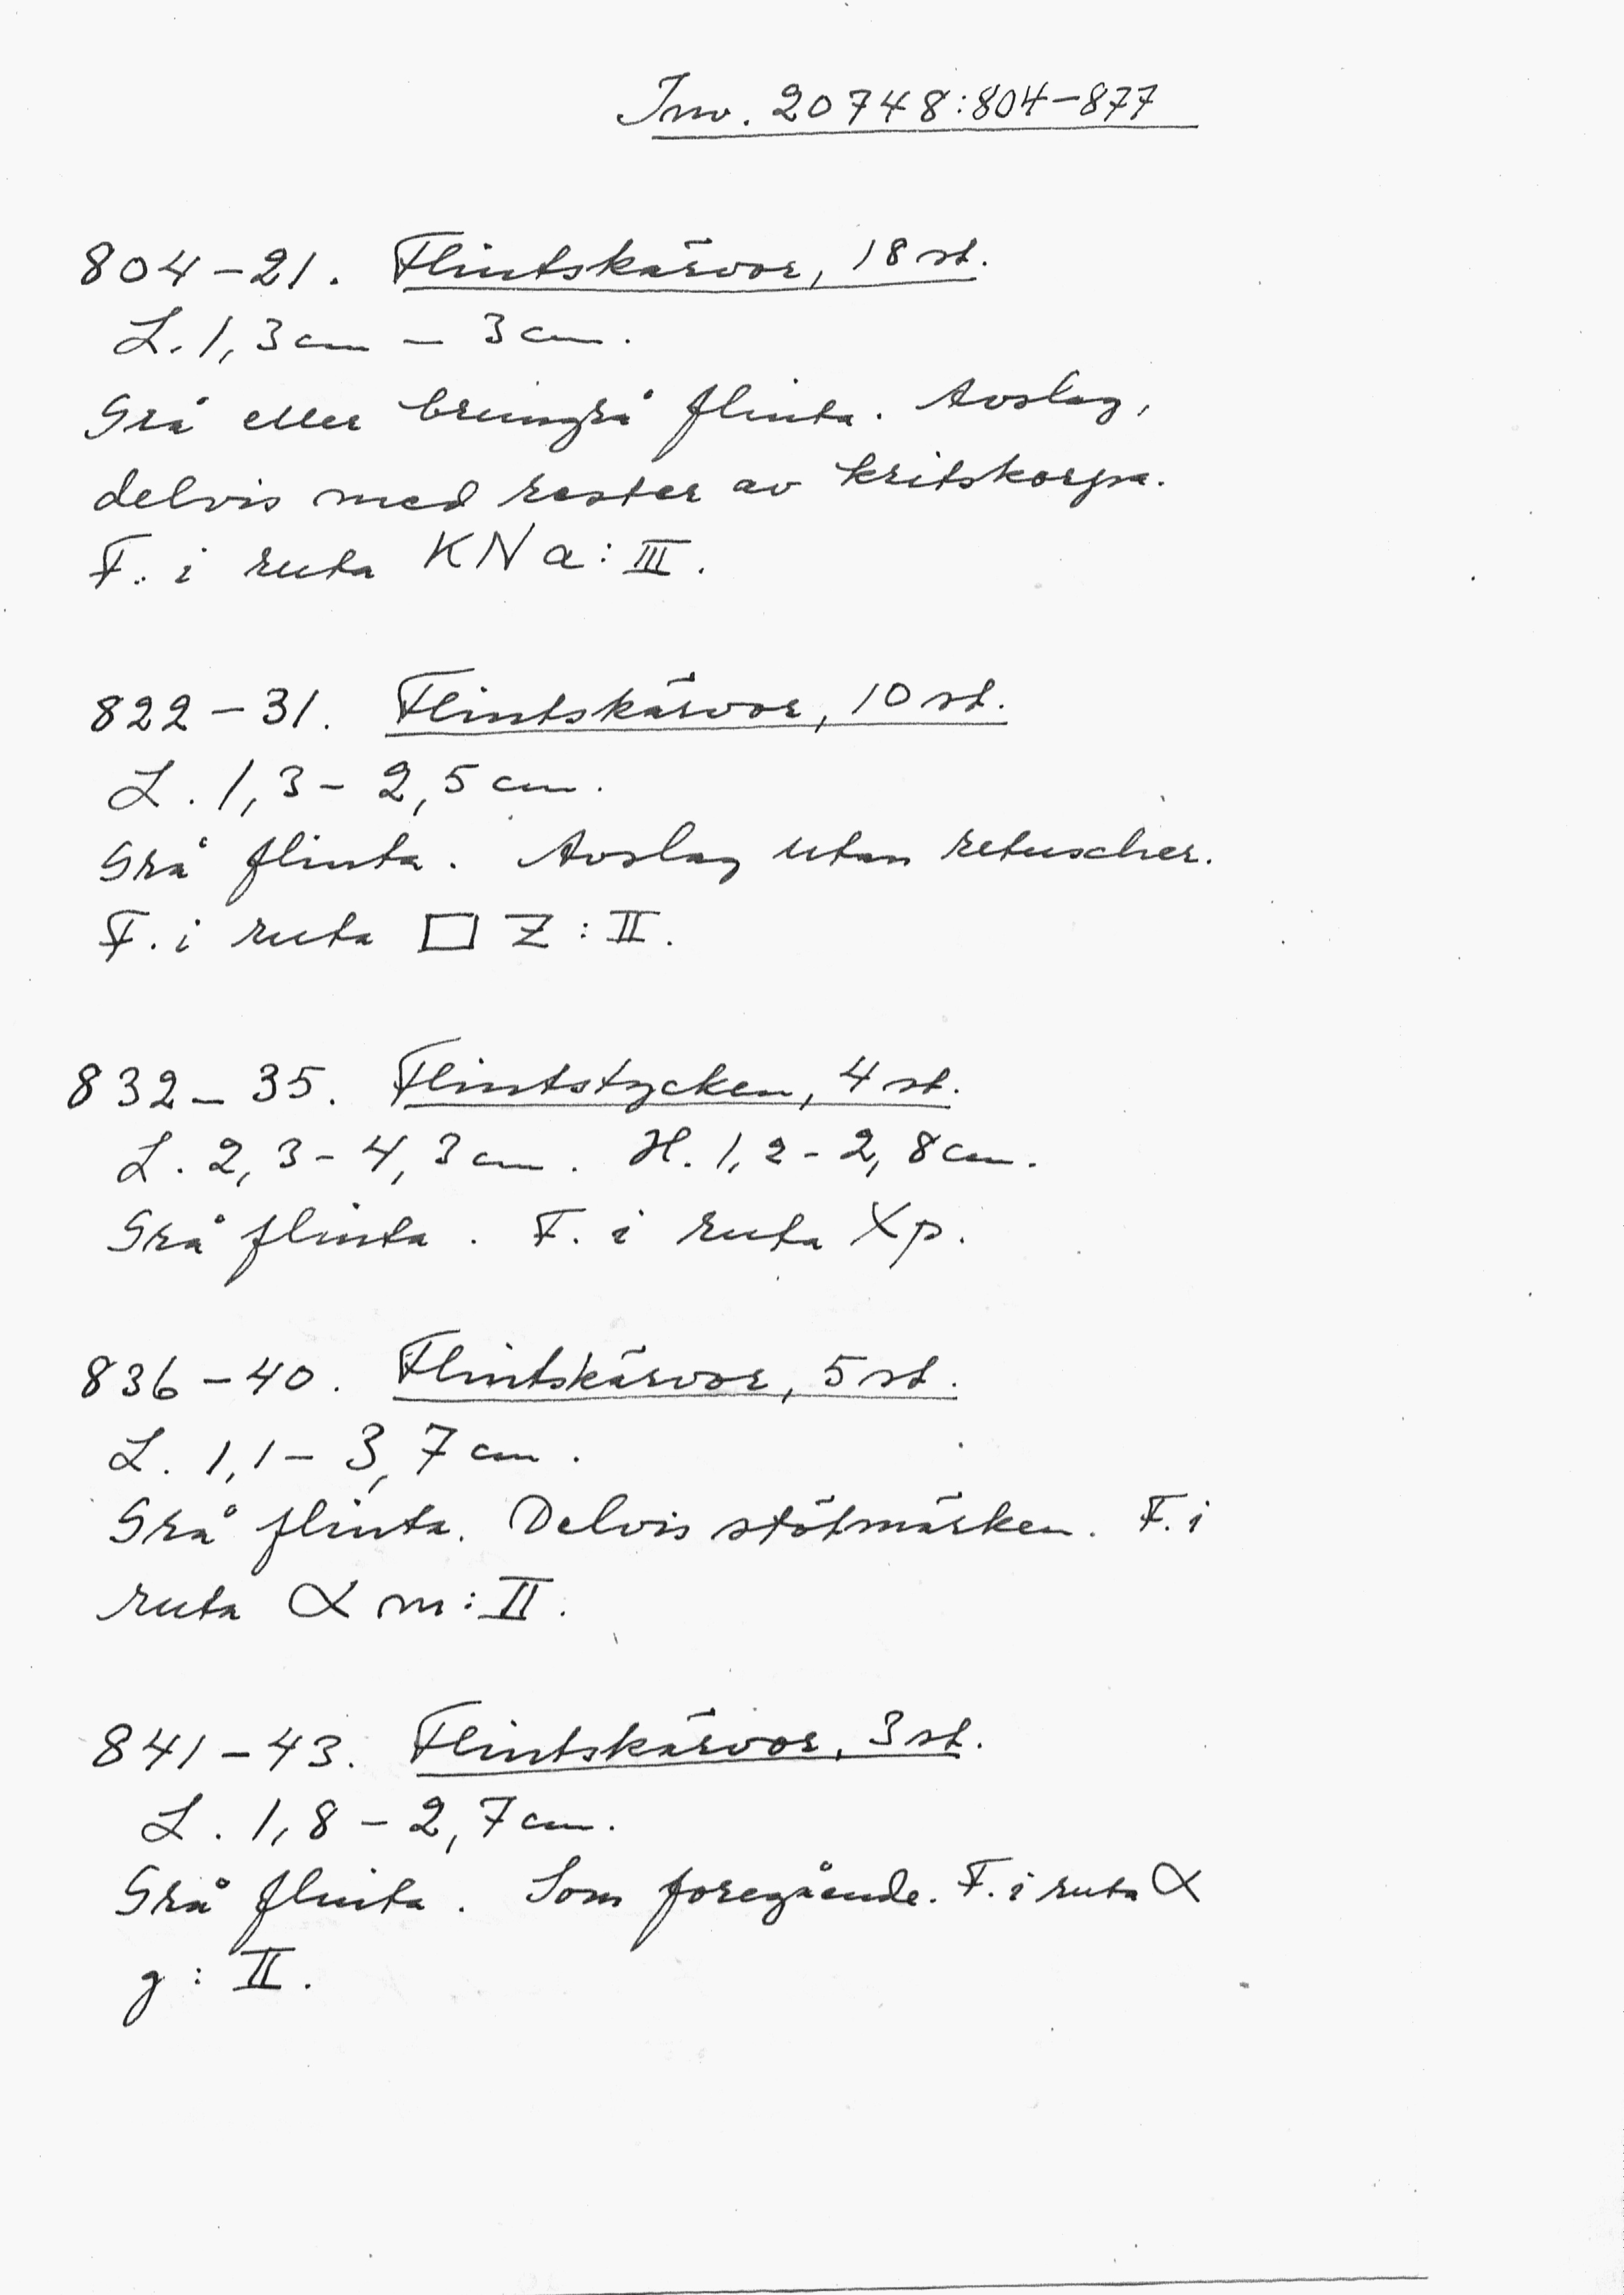 Inv. 20748:804-877
804-21. Flintskärvor, 18 st.
L. 1,3 cm - 3 cm.
Grå eller brungrå flinta. Avslag,
delvis med rester av kritskorpa.
F. i ruta KNa: III.
822-31. Flintskärvor, 10 st.
L. 1,3 - 2,5 cm.
Grå flinta. Avslag utan retuscher.
F. i ruta □ Z: II.
832-35. Flintstycken, 4 st.
L. 2,3 - 4,3 cm. H. 1,2 - 2,8 cm.
Grå flinta. F. i ruta Xp.
836-40. Flintskärvor, 5 st.
L. 1,1 - 3,7 cm.
Grå flinta. Delvis stötmärken. F. i
ruta α m: II.
841-43. Flintskärvor, 3 st.
L. 1,8 - 2,7 cm.
Grå flinta. Som föregående. F. i ruta α
g: II.